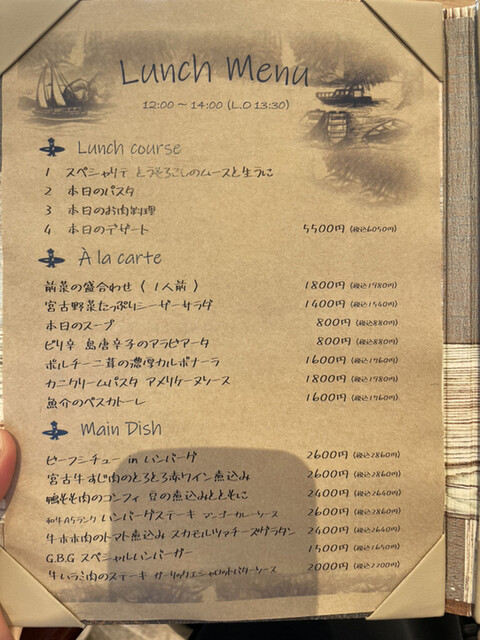 Lunch Menu
12:00 ～ 14:00 (L.O 13:30)
Lunch course
1 スペシャリテ とうもろこしのムースと生うに
2 本日のパスタ
3 本日のお肉料理
4 本日のデザート 5500円 (税込6050円)
À la carte
前菜の盛合わせ ( 1人前 ) 1800円 (税込1980円)
宮古野菜たっぷりシーザーサラダ 1400円 (税込1540円)
本日のスープ 800円 (税込880円)
ピリ辛 島唐辛子のアラビアータ 800円 (税込880円)
ポルチーニ茸の濃厚カルボナーラ 1600円 (税込1760円)
カニクリームパスタ アメリケーヌソース 1800円 (税込1980円)
魚介のペスカトーレ 1600円 (税込1760円)
Main Dish
ビーフシチュー in ハンバーグ 2600円 (税込2860円)
宮古牛すじ肉のとろとろ赤ワイン煮込み 2600円 (税込2860円)
鴨もも肉のコンフィ 豆の煮込みとともに 2400円 (税込2640円)
和牛A5ランク ハンバーグステーキ マンゴーカレーソース 2600円 (税込2860円)
牛ホホ肉のトマト煮込み スカモルツァチーズグラタン 2400円 (税込2640円)
G.B.G スペシャルハンバーガー 1500円 (税込1650円)
牛ハラミ肉のステーキ ガーリックエシャロットバターソース 2000円 (税込2200円)